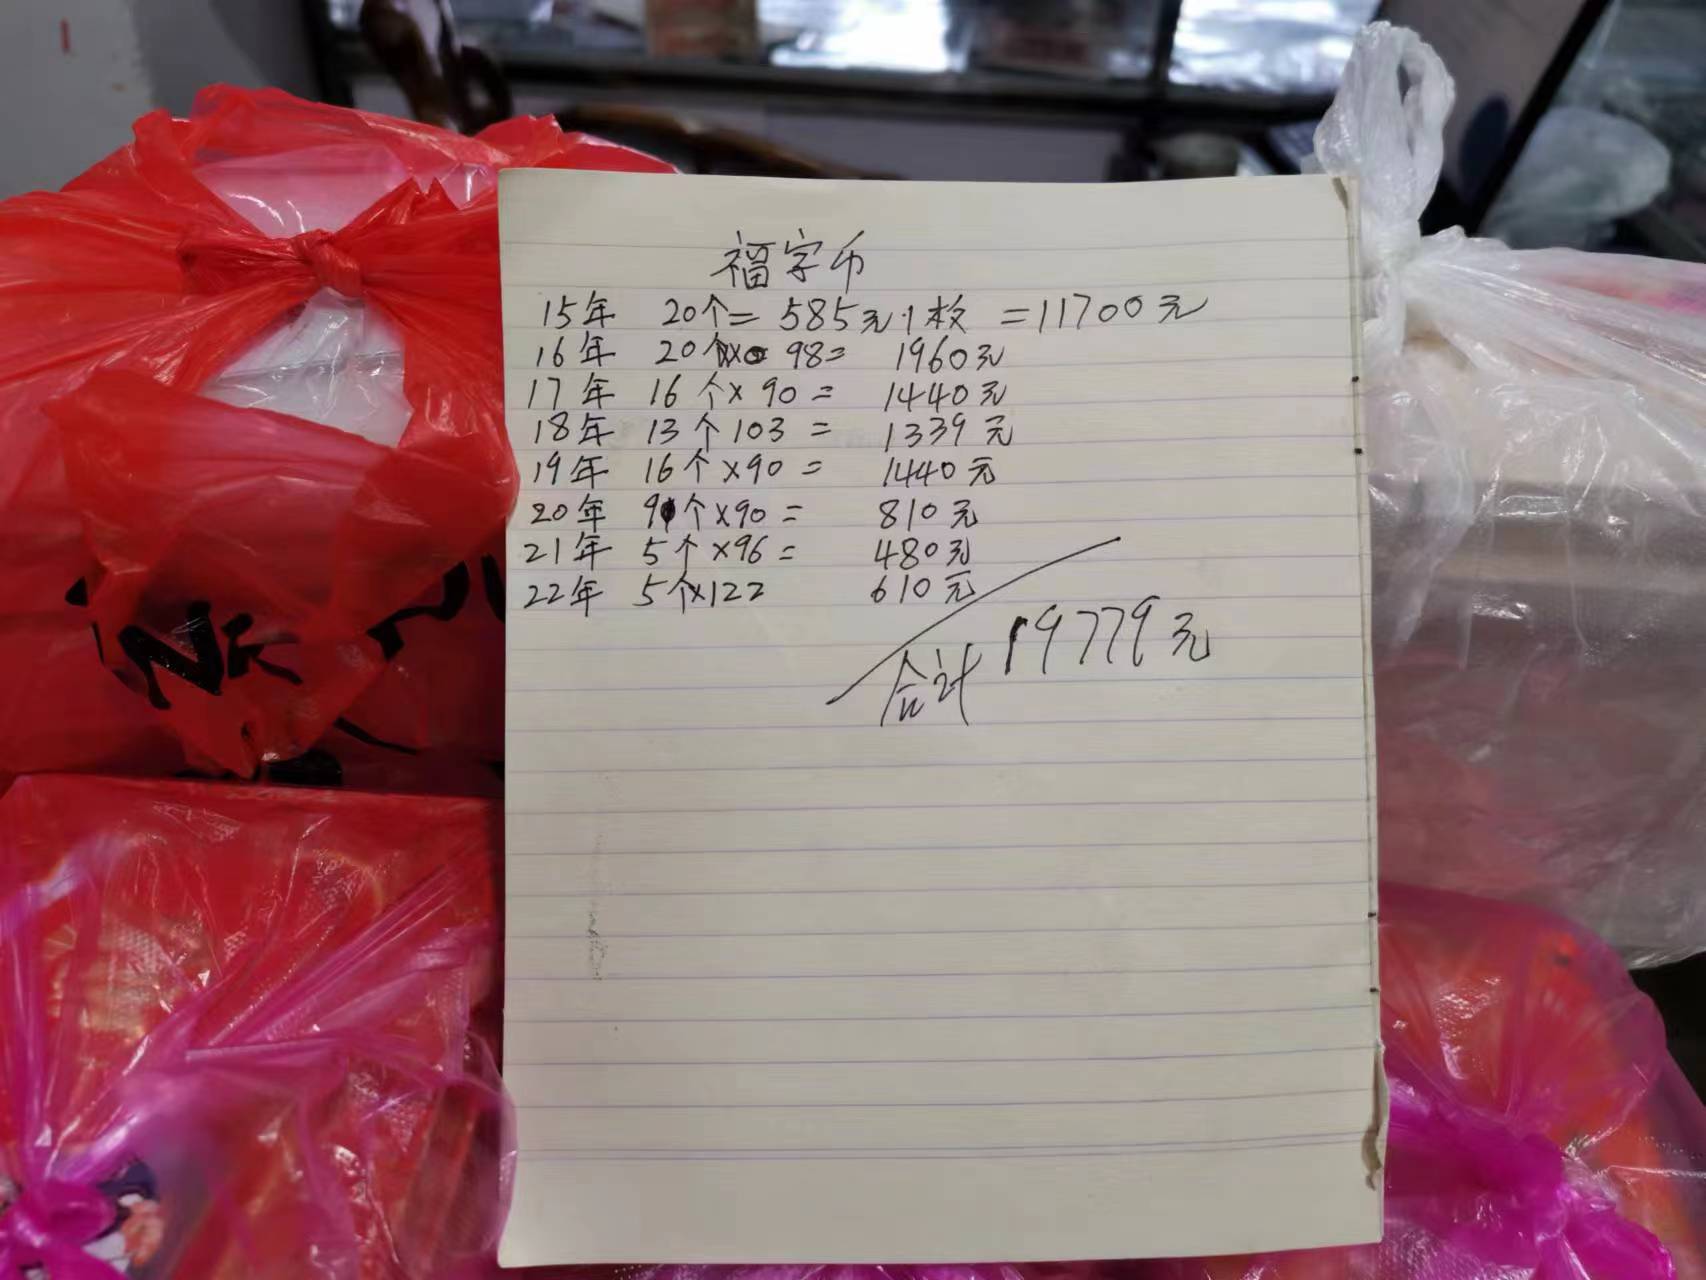 福字币
15年 20个= 585元1枚 =11700元
16年 20个x 98= 1960元
17年 16个x90= 1440元
18年 13个103= 1339元
19年 16个x90= 1440元
20年 9个x90= 810元
21年 5个x96= 480元
22年 5个x122 610元
合计19779元